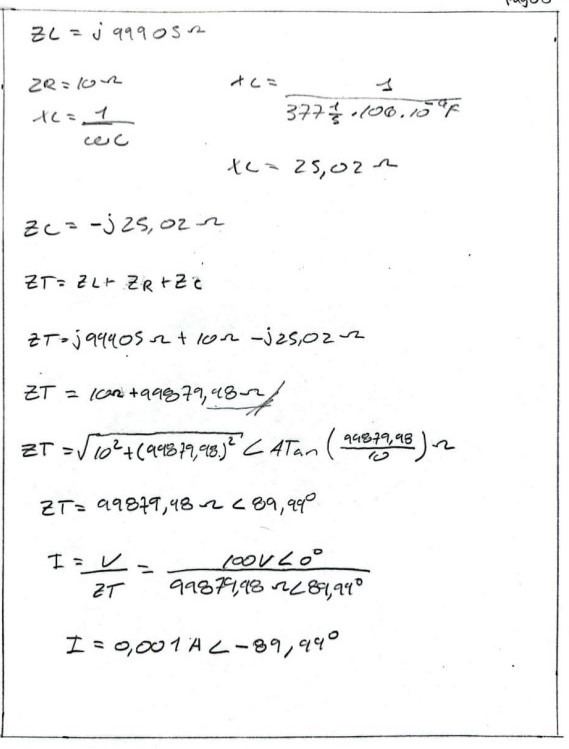 ZL = j 99905 Ω
ZR = 10 Ω
XC = 1 / (377 1/s · 106 · 10⁻⁹F)
XC = 1 / ωC
XC = 25,02 Ω
ZC = -j 25,02 Ω
ZT = ZL + ZR + ZC
ZT = j99905 Ω + 10 Ω - j25,02 Ω
ZT = 10Ω + 99879,98 Ω
ZT = √(10² + (99879,98)²) ∠ ATan (99879,98 / 10) Ω
ZT = 99879,98 Ω ∠ 89,99°
I = V / ZT = 100V∠0° / 99879,98 Ω∠89,99°
I = 0,001 A ∠ -89,99°